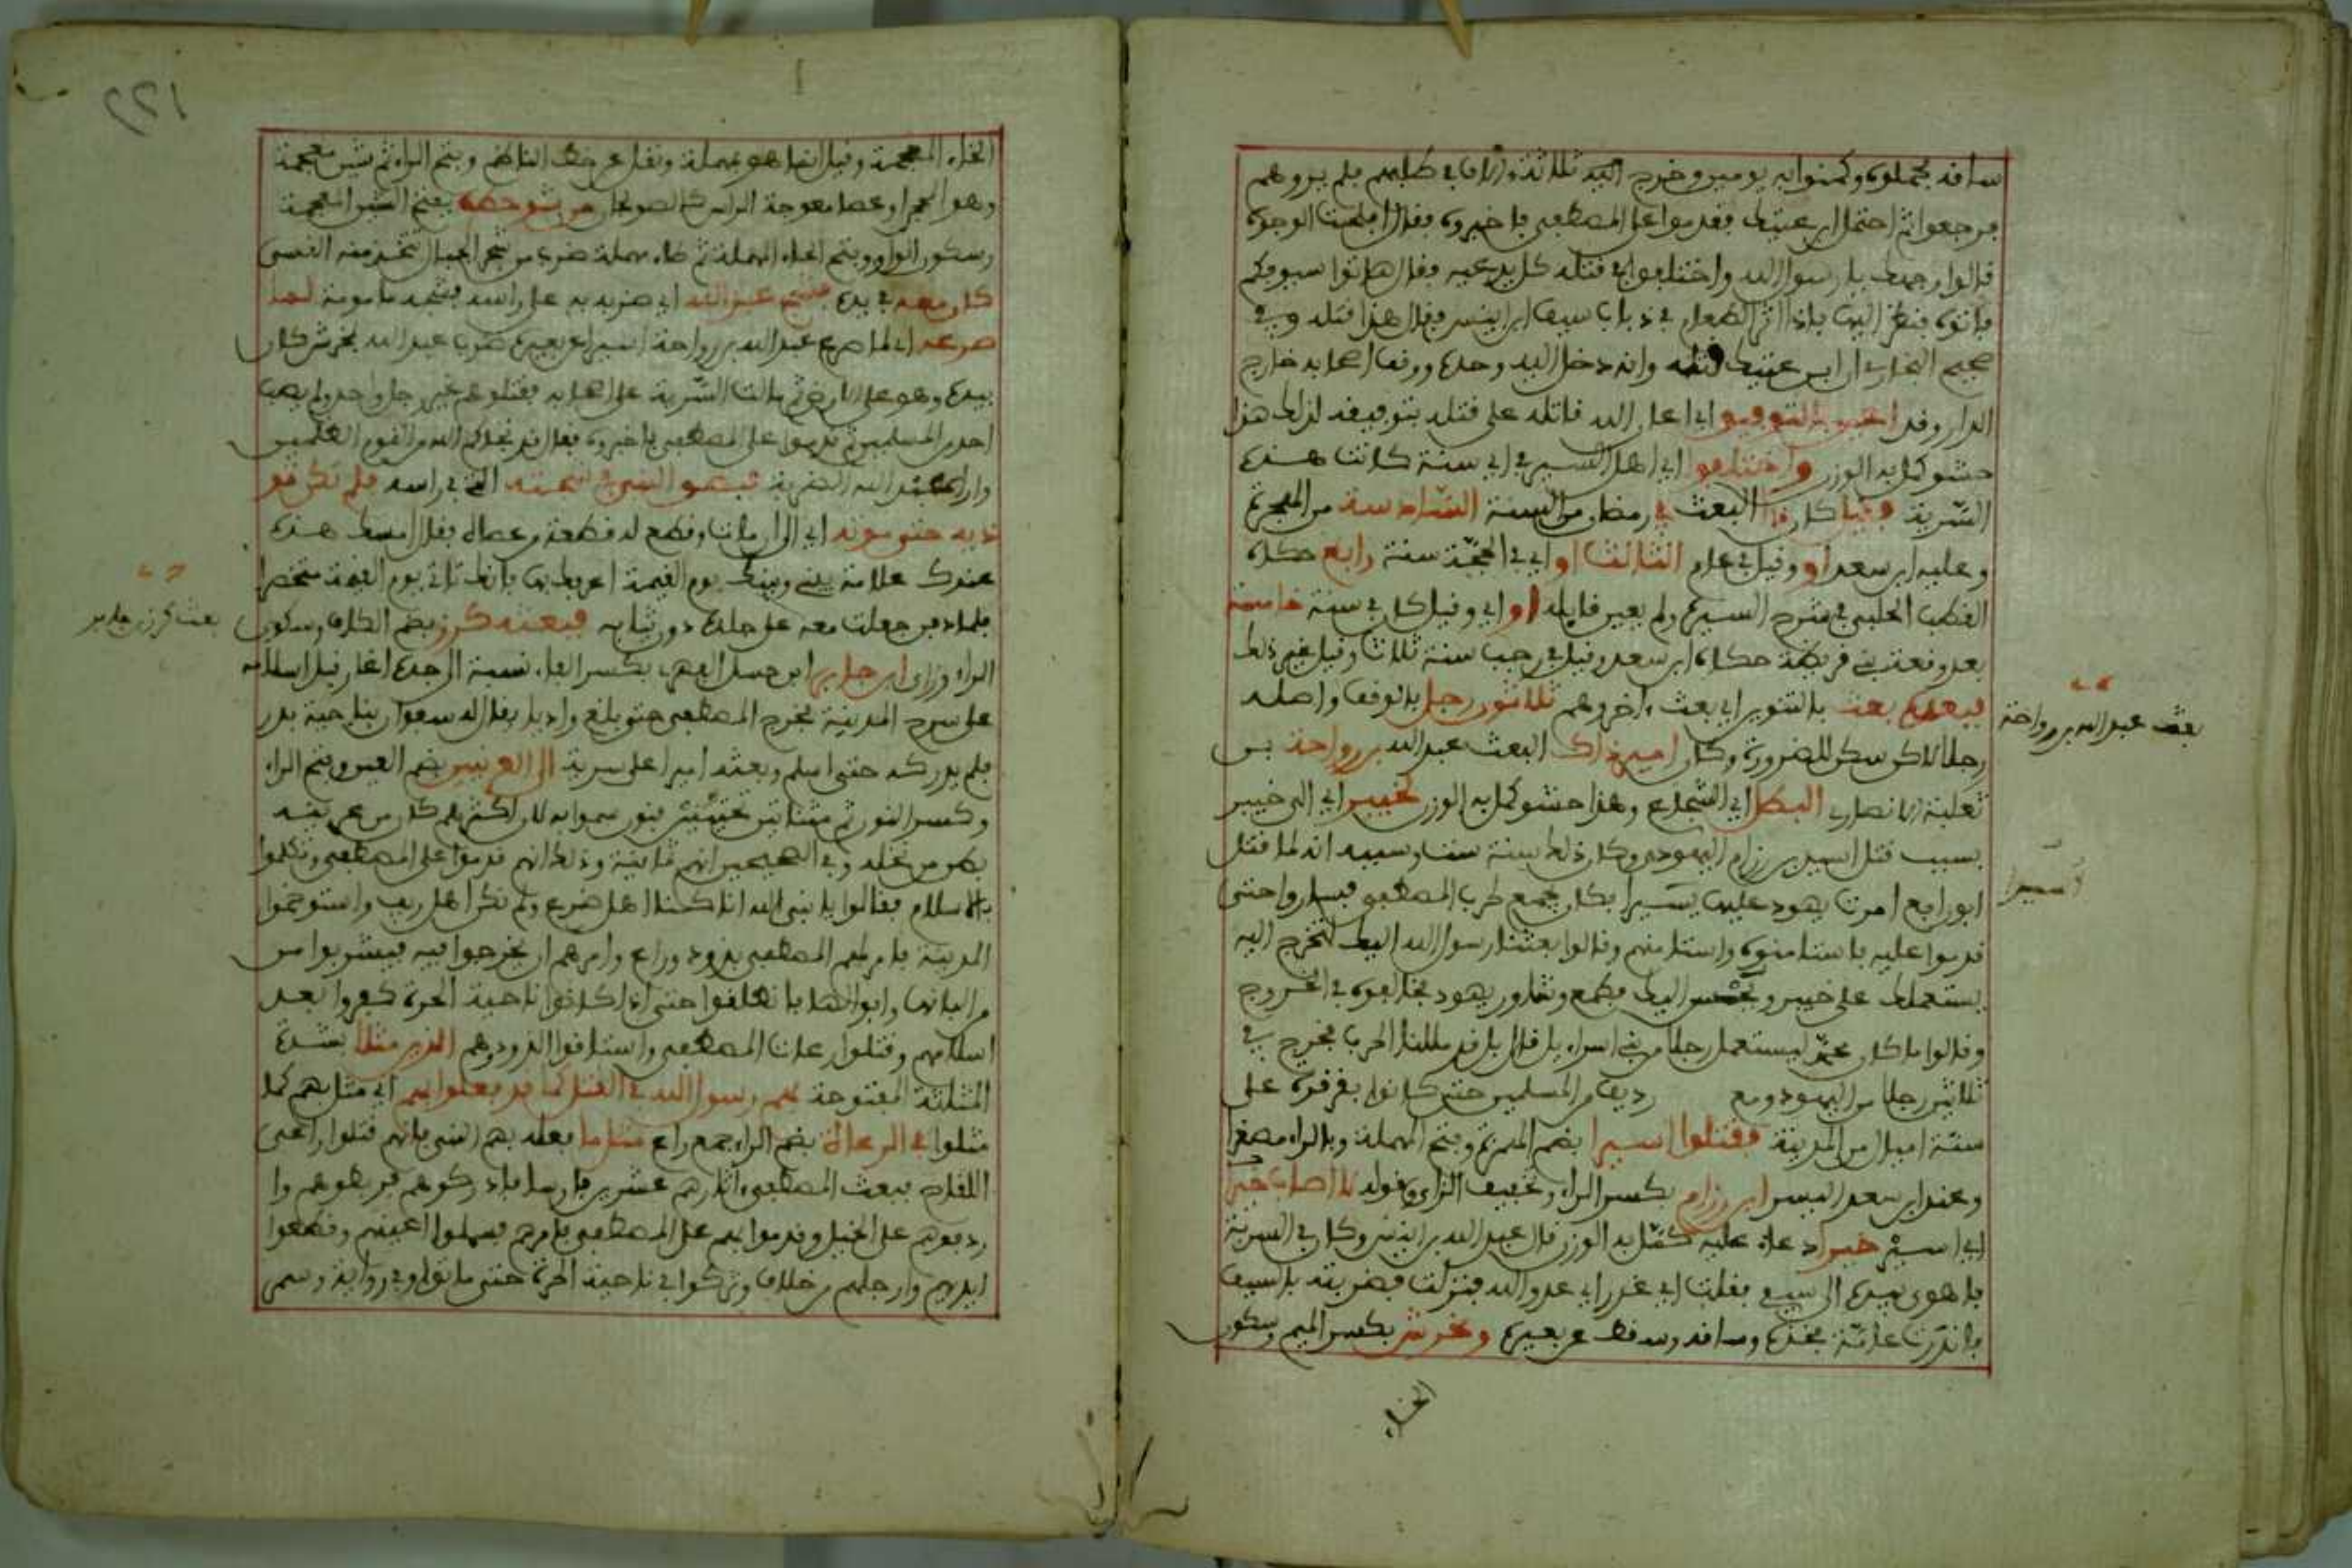 ساقه فحملوه وكمنوا به يومين وخرج اليه ثلاثة ءالاف في طلبهم فلم يروهم
فرجعوا ثم احتمل ابن عتيك فقدموا على المصطفى فاخبروه فقال افلحت الوجوه
قالوا وجهك يا رسول الله واختلفوا في قتله كل يدعيه فقال هاتوا سيوفكم
فاتوه فنظر اليها فاذا اثر الطعام في ذباب سيف ابن انيس فقال هذا قتله وفي
صحيح البخاري ان ابن عتيك قتله وانه دخل اليه وحده ووقف اصحابه خارج
الدار وقد اعين بالتوفيق اي اعان الله قاتله على قتله بتوفيقه لذلك هذا
حشو كمل به الوزن واختلفوا اي اهل السير في اي سنة كانت هذه
السرية فقيل كان ذا البعث في رمضان من السنة السادسة من الهجرة
وعليه ابن سعد او وقيل في عام الثالث او اي في الحجة سنة رابع حكاه
القطب الحلبي في شرح السيرة ولم يعين قايله او اي وقيل كان في سنة خامسة
بعد وقعة بني قريظة حكاه ابن سعد وقيل في رجب سنة ثلاث وقيل غير ذلك
فبعده بعث بالتنوين اي بعث ءاخر وهم ثلاثون رجل بالوقف واصله
رجلا لاكن سكن للضرورة وكان امير ذاك البعث عبد الله بن رواحة بن
ثعلبة الانصاري البطل اي الشجاع وهذا حشو كمل به الوزن لخيبر اي الى خيبر
بسبب قتل اسير بن رزام اليهودي وكان ذلك سنة ست وسببه انه لما قتل
ابو رافع امرت يهود عليها يسيرا فكان يجمع لحرب المصطفى فساروا حتى
قدموا عليه فاستامنوه واستامنهم وقالوا بعثنا رسول الله اليك لتخرج اليه
يستعملك على خيبر ويحسن اليك فطمع وشاور يهود فخالفوه في الخروج
وقالوا ما كان محمد ليستعمل رجلا من بني اسراءيل قال بل قد مللنا الحرب فخرج في
ثلاثين رجلا من اليهود ومع رديف من المسلمين حتى كانوا بقرقرة على
ستة اميال من المدينة فقتلوا اسيرا بضم الهمزة وفتح المهملة وبالراء مصغرا
وعند ابن سعد اليسر ابن رزام بكسر الراء وتخفيف الزاي وقوله لا اصاب خيرا
اي اسير خيرا دعاء عليه كمل به الوزن قال عبد الله بن انيس وكان في السرية
فاهوى بيده الى سيفي فقلت اي غدر اي عدو الله فنزلت فضربته بالسيف
فاندرت عامة فخذه وساقه وسقط عن بعيره ومخرش بكسر الميم وسكون
الخاء
بعث عبد الله بن رواحة
اسيرا
الخاء المعجمة وقيل انما هو بمهملة ونقل عن خط الناظم وبفتح الراء ثم شين معجمة
وهو المحجن او عصا معوجة الراس كالصولجان من شوحط بفتح الشين المعجمة
وسكون الواو وبفتح الحاء المهملة ثم طاء مهملة ضرب من شجر الجبال تتخذ منه القسي
كان معه في يده فشج عبد الله اي ضربه به على راسه فشجه مامومة لما
صرعه اي لما صرع عبد الله بن رواحة اسيرا عن بعيره ضرب عبد الله بمخرش كان
بيده وهو على الارض ثم مالت السرية على اصحابه فقتلوهم غير رجل واحد ولم يصب
احد من المسلمين ثم قدموا على المصطفى فاخبروه فقال قد نجاكم الله من القوم الظلمين
وارى عبد الله الضربة فبصق النبي في شجته التي في راسه فلم تكن تو
ذيه حتى موته اي الى ان مات وقطع له قطعة من عصاه فقال امسك هذه
عندك علامة بيني وبينك يوم القيمة اعرفك بها فانك تاتي يوم القيمة متخصرا
فلما دفن جعلت معه على جلده دون ثيابه فبعثه كرز بضم الكاف وسكون
الراء وزاي ابن جابر ابن حسل الفهري بكسر الفاء نسبة الى جده اغار قبل اسلامه
على سرح المدينة فخرج المصطفى حتى بلغ واديا يقال له سفوان بناحية بدر
فلم يدركه حتى اسلم وبعثه اميرا على سرية الى العرنيين بضم العين وفتح الراء
وكسر النون ثم مثناتين تحتيتين فنون سموا به لان اكثرهم كان من عرينة
بطن من بجلة وفي الصحيحين انهم ثمانية وذلك انهم قدموا على المصطفى وتكلموا
بالاسلام فقالوا يا نبي الله انا كنا اهل ضرع ولم نكن اهل ريف واستوخموا
المدينة فامر لهم المصطفى بذود وراع وامرهم ان يخرجوا فيه فيشربوا من
من البانها وابوالها فانطلقوا حتى اذا كانوا ناحية الحرة كفروا بعد
اسلامهم وقتلوا رعاة المصطفى واستاقوا الذود وهم الذين مثلا بشدة
المثلثة المفتوحة بهم رسول الله في القتل كما قد فعلوا بهم اي مثل بهم كما
مثلوا في الرعاة بضم الراء جمع راع مثل ما فعله بهم النبي فانهم قتلوا راعي
اللقاح فبعث المصطفى ءاثارهم عشرين فارسا فادركوهم فربطوهم وا
ردفوهم على الخيل وقدموا بهم على المصطفى فامر بهم فسملوا اعينهم وقطعوا
ايديهم وارجلهم من خلاف وتركوا في ناحية الحرة حتى ماتوا وفي رواية وسمر
بعث كرز بن جابر